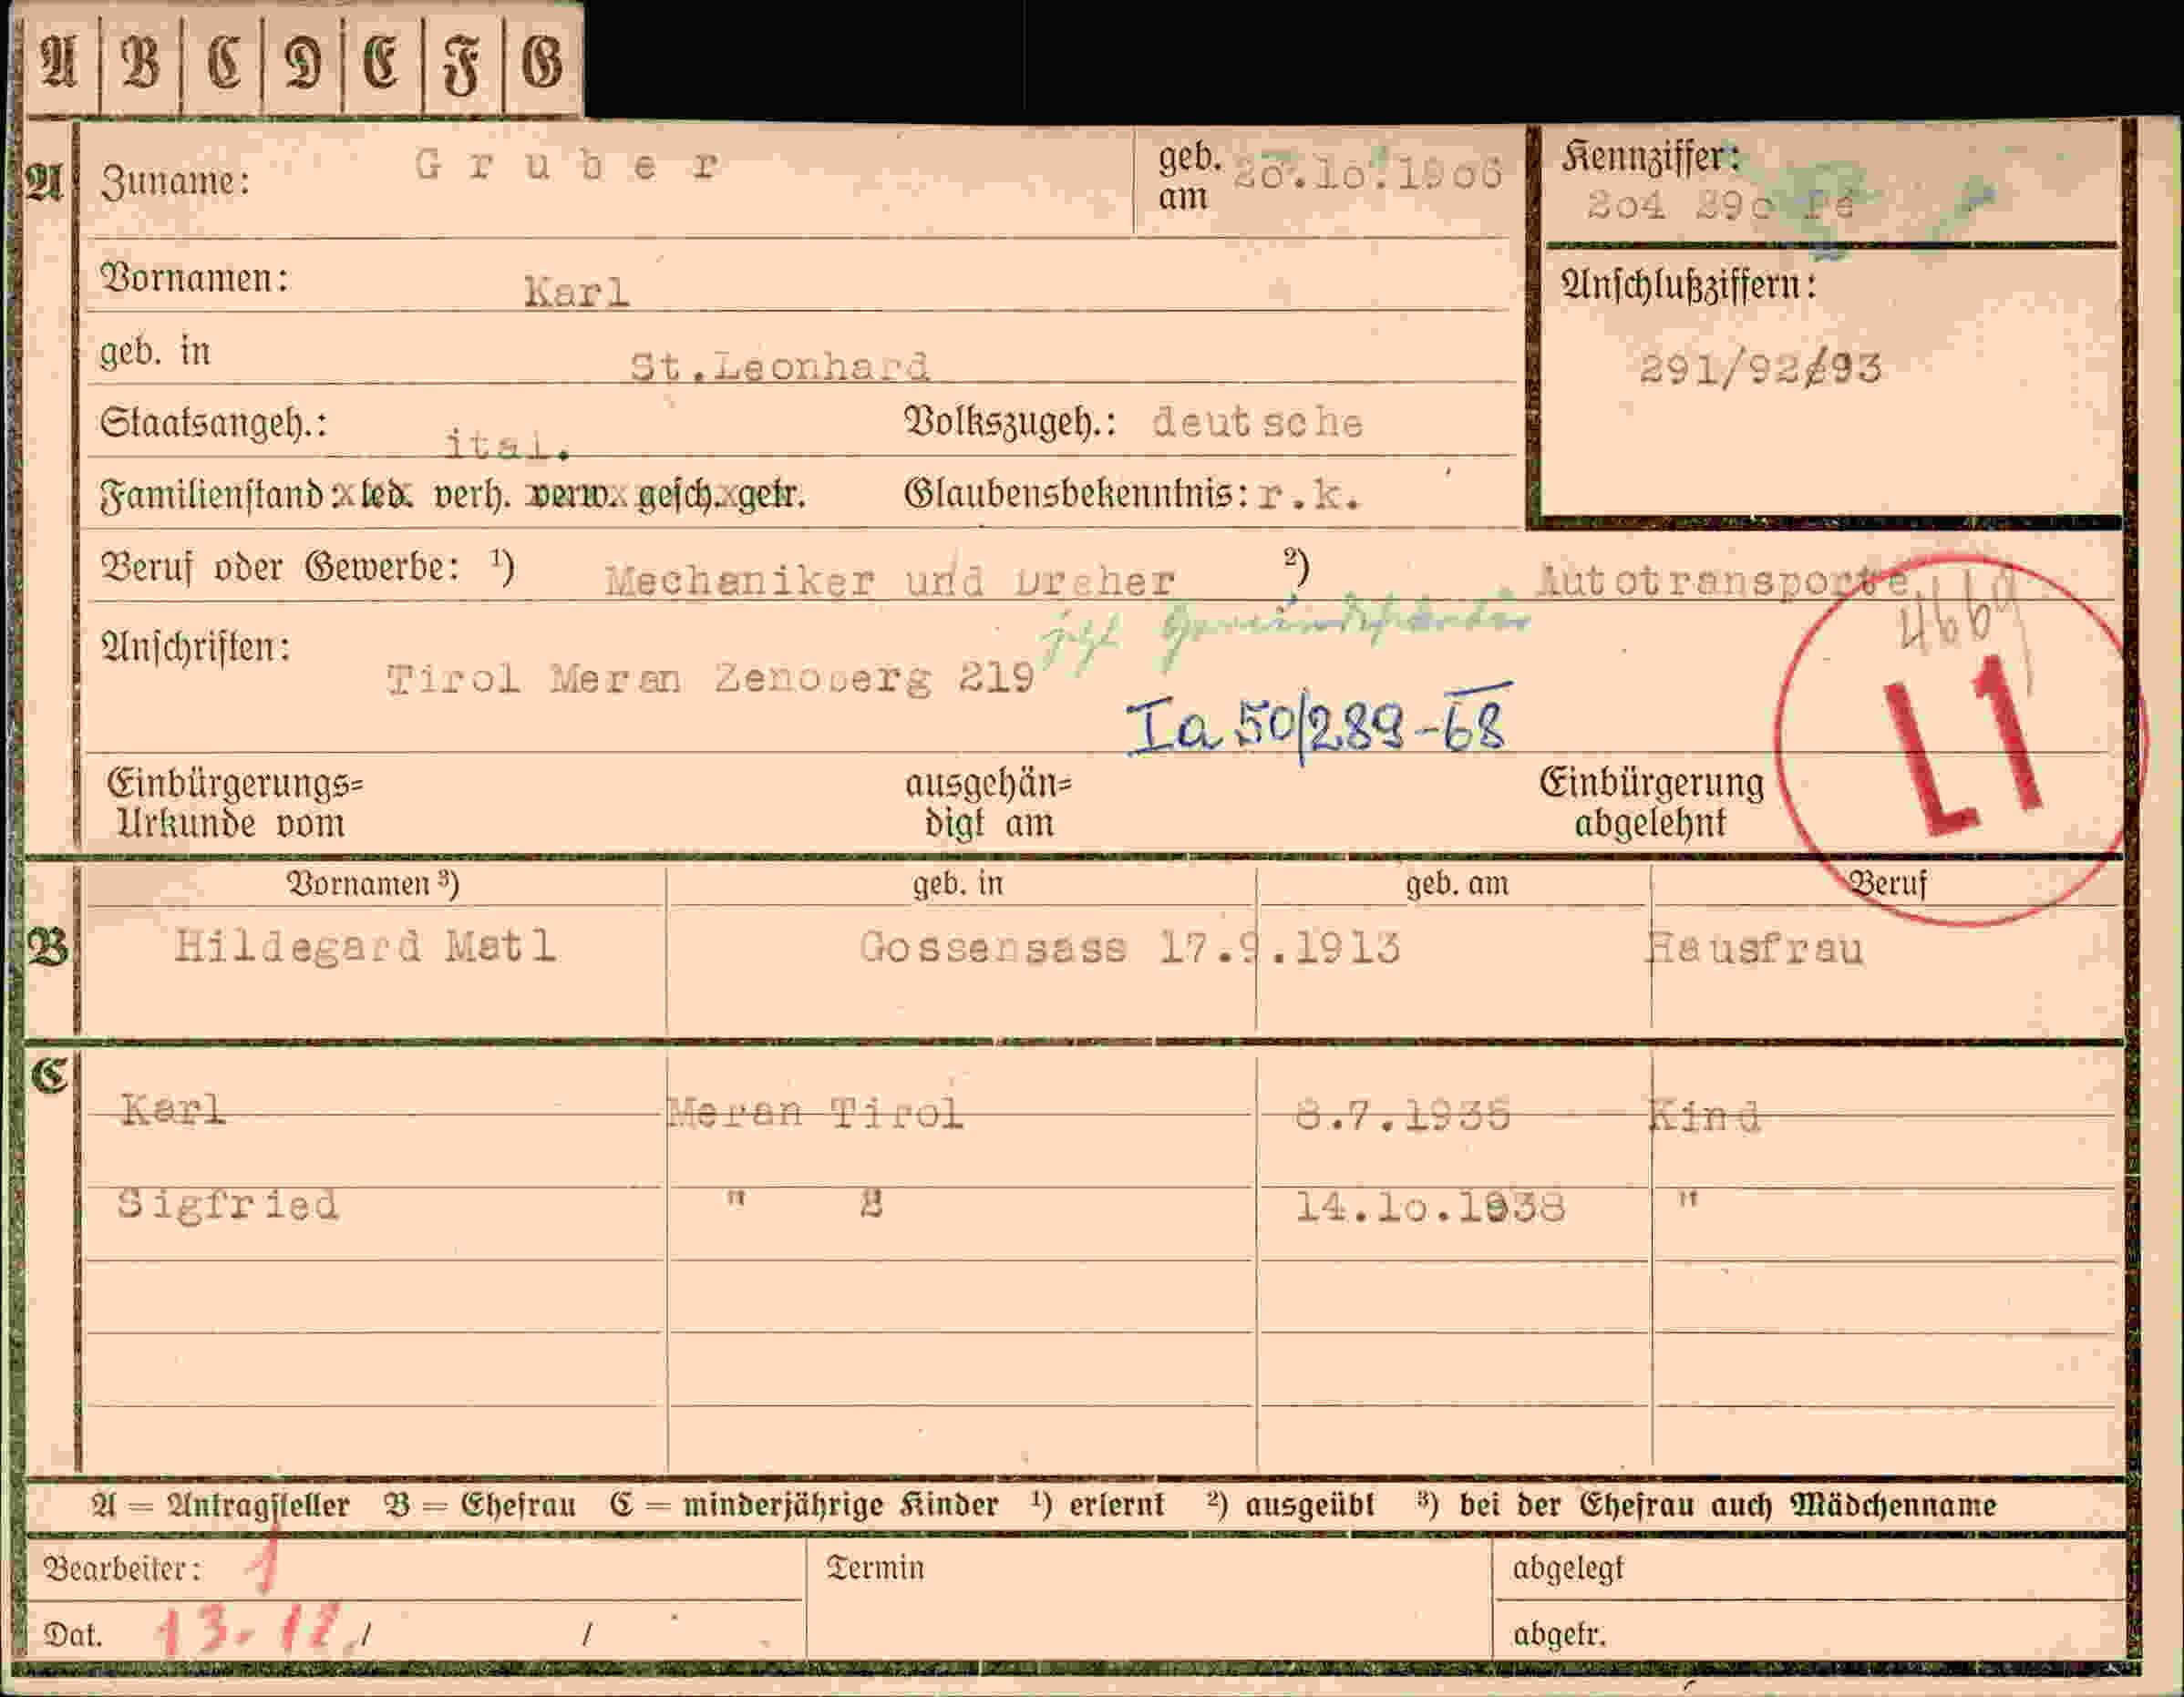 A B C D E F G
A Zuname: Gruber geb. am 20.10.1906 Kennziffer:
204 290 Pe
Vornamen: Karl Anschlußziffern:
geb. in St.Leonhard 291/92/93
Staatsangeh.: ital. Volkszugeh.: deutsche
Familienstand: led. verh. verw. gesch. getr. Glaubensbekenntnis: r.k.
Beruf oder Gewerbe: 1) Mechaniker und Dreher 2) Autotransporte
4669
Anschriften: jetzt
Tirol Meran Zenoberg 219
Ia 50/289-68
L1
Einbürgerungs= Urkunde vom ausgehän= digt am Einbürgerung abgelehnt
Vornamen 3) geb. in geb. am Beruf
B Hildegard Matl Gossensass 17.9.1913 Hausfrau
C
Karl Meran Tirol 8.7.1935 Kind
Sigfried " " 14.10.1938 "
A = Antragsteller B = Ehefrau C = minderjährige Kinder 1) erlernt 2) ausgeübt 3) bei der Ehefrau auch Mädchenname
Bearbeiter: 1 Termin abgelegt
Dat. 13.12. / / abgetr.